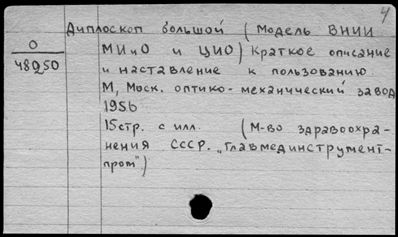 4
Диплоскоп большой (Модель ВНИИ
О
48250
МИиО и ЦИО) Краткое описание
и наставление к пользованию.
М, Моск. оптико-механический завод
1956
15стр. с илл. (М-во здравоохра-
нения СССР. „Главмединструмент-
пром")